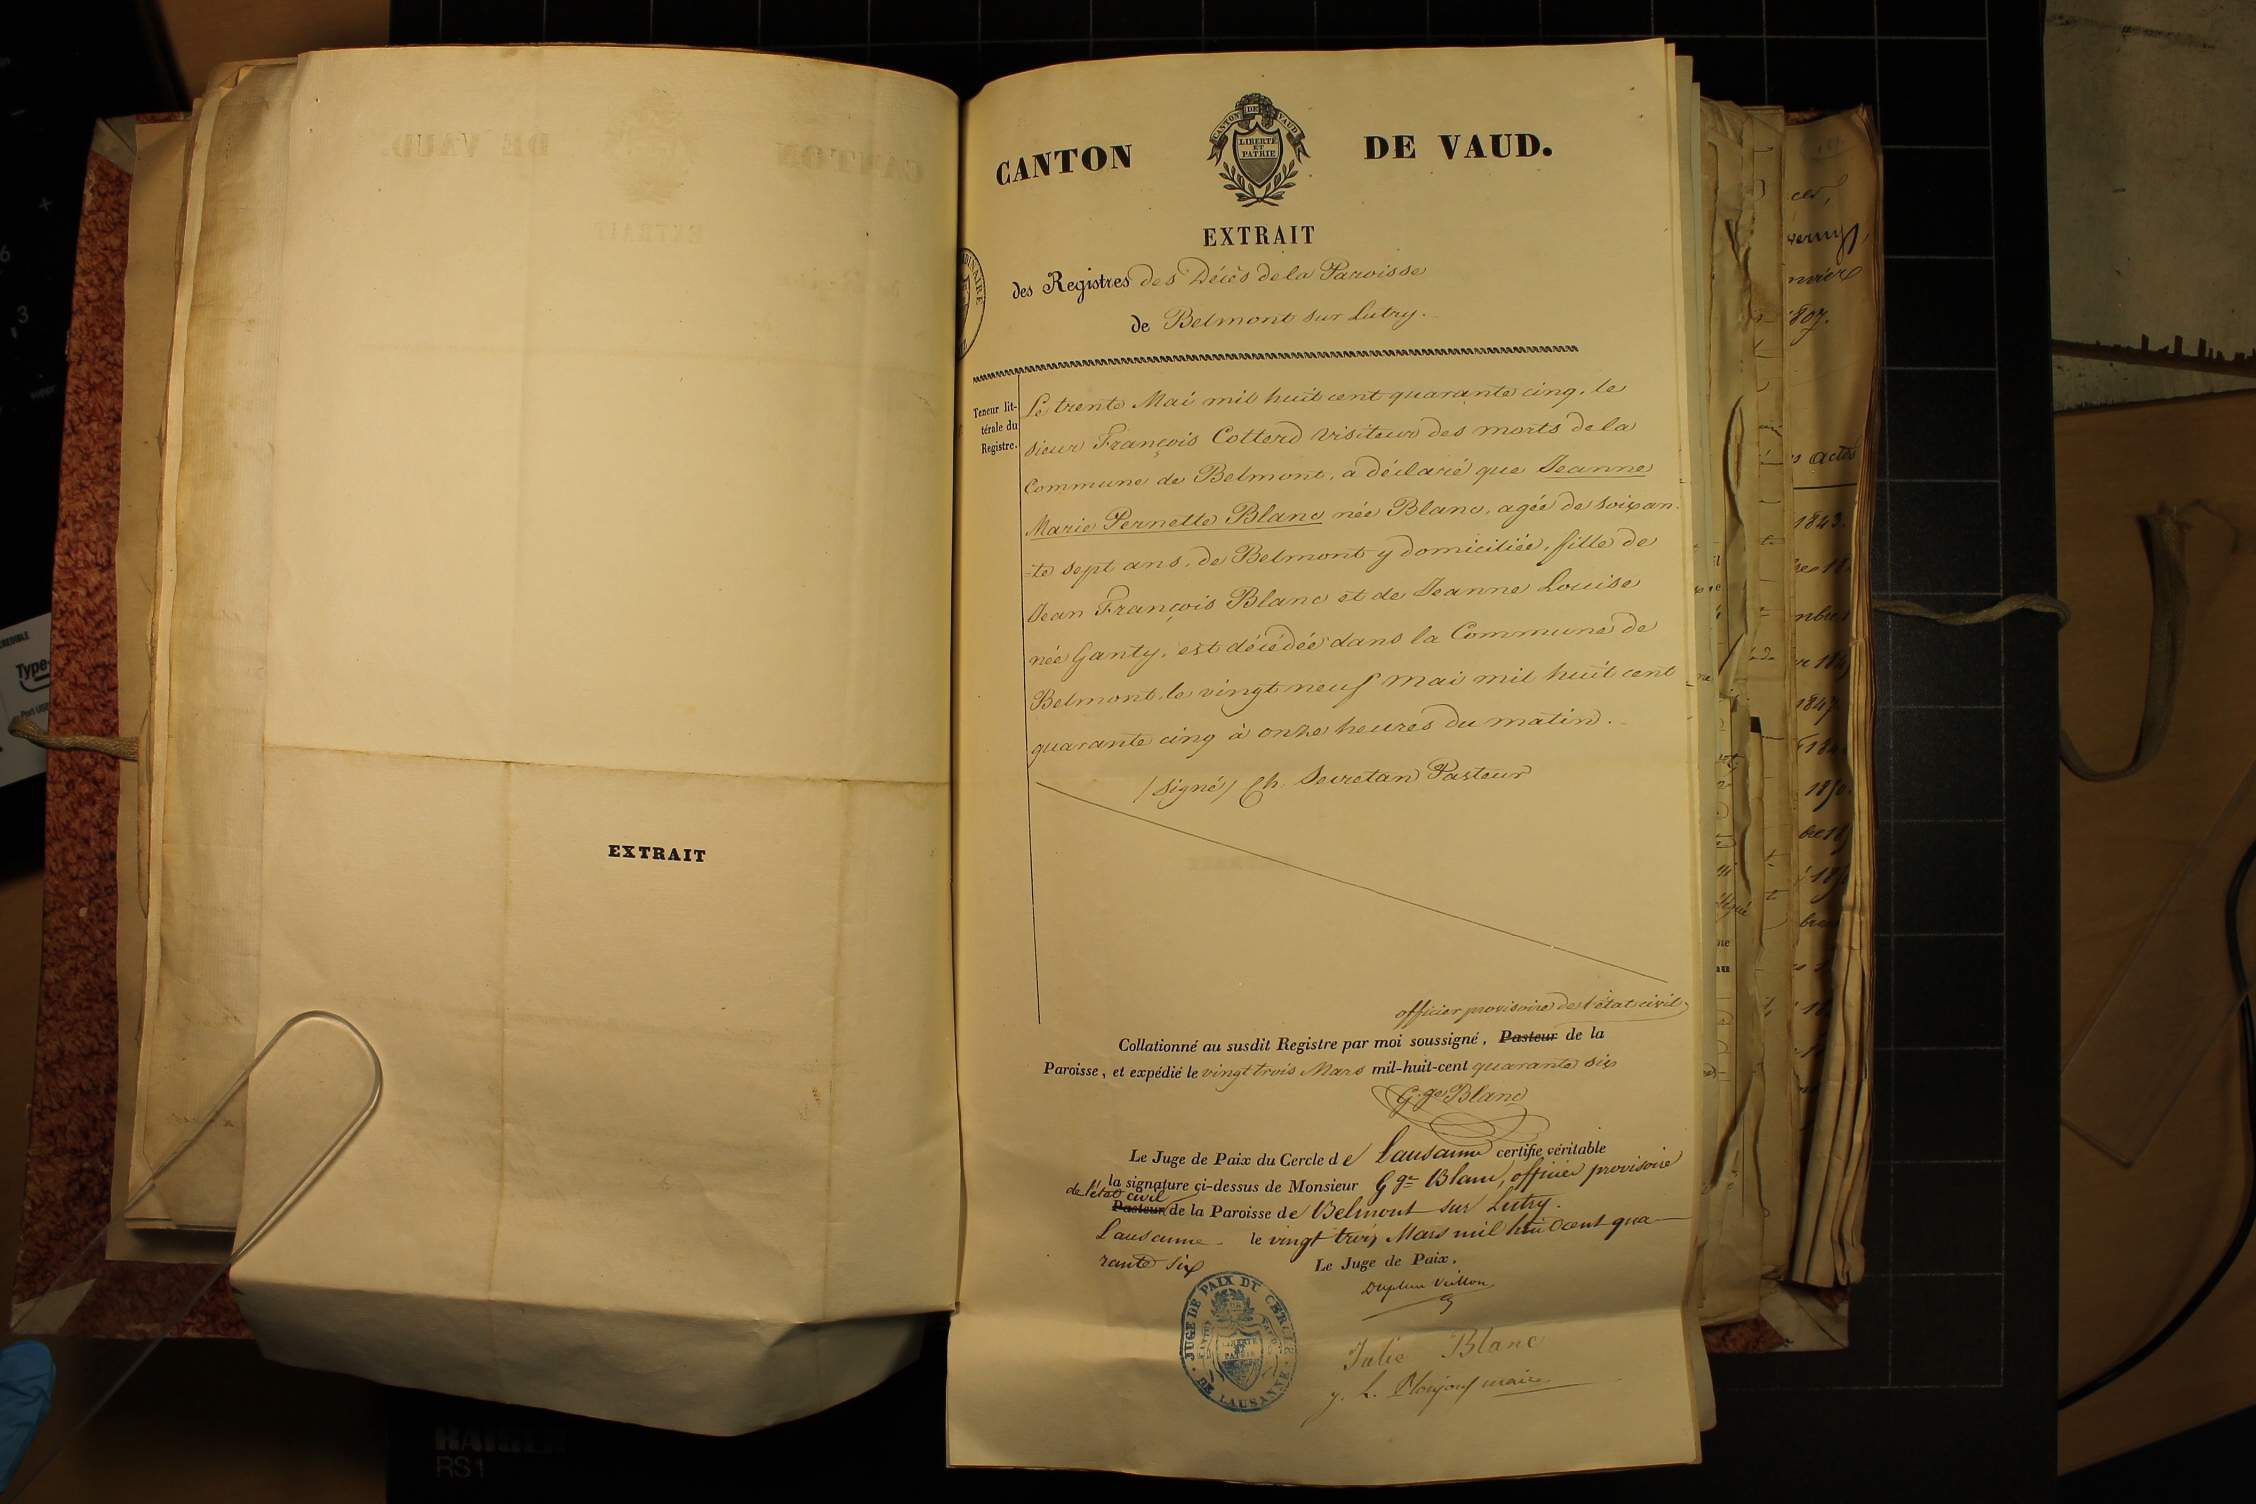 EXTRAIT
CANTON DE VAUD.
CANTON DE VAUD
LIBERTÉ
ET
PATRIE
EXTRAIT
des Registres des Décès de la Paroisse
de Belmont sur Lutry.
Teneur lit-
térale du
Registre.
Le trente Mai mil huit cent quarante cinq, le
sieur François Cotterd visiteur des morts de la
Commune de Belmont, a déclaré que Jeanne
Marie Pernette Blanc née Blanc, agée de soixan-
-te sept ans, de Belmont y domiciliée, fille de
Jean François Blanc et de Jeanne Louise
née Ganty, est décédée dans la Commune de
Belmont, le vingt neuf Mai mil huit cent
quarante cinq à onze heures du matin.
/signé/ Ch. Secretan Pasteur
officier provisoire de l'état civil
Collationné au susdit Registre par moi soussigné, Pasteur de la
Paroisse, et expédié le vingt trois Mars mil-huit-cent quarante six
G.ge Blanc
Le Juge de Paix du Cercle de Lausanne certifie véritable
la signature ci-dessus de Monsieur Gge Blanc, officier provisoire
de l'état civil
Pasteur de la Paroisse de Belmont sur Lutry.
Lausanne le vingt trois Mars mil huit cent qua-
rante six
Le Juge de Paix.
Veillon
JUGE DE PAIX DU CERCLE DE LAUSANNE
LIBERTÉ
ET
PATRIE
Julie Blanc
maire
1843.
1847
RS1